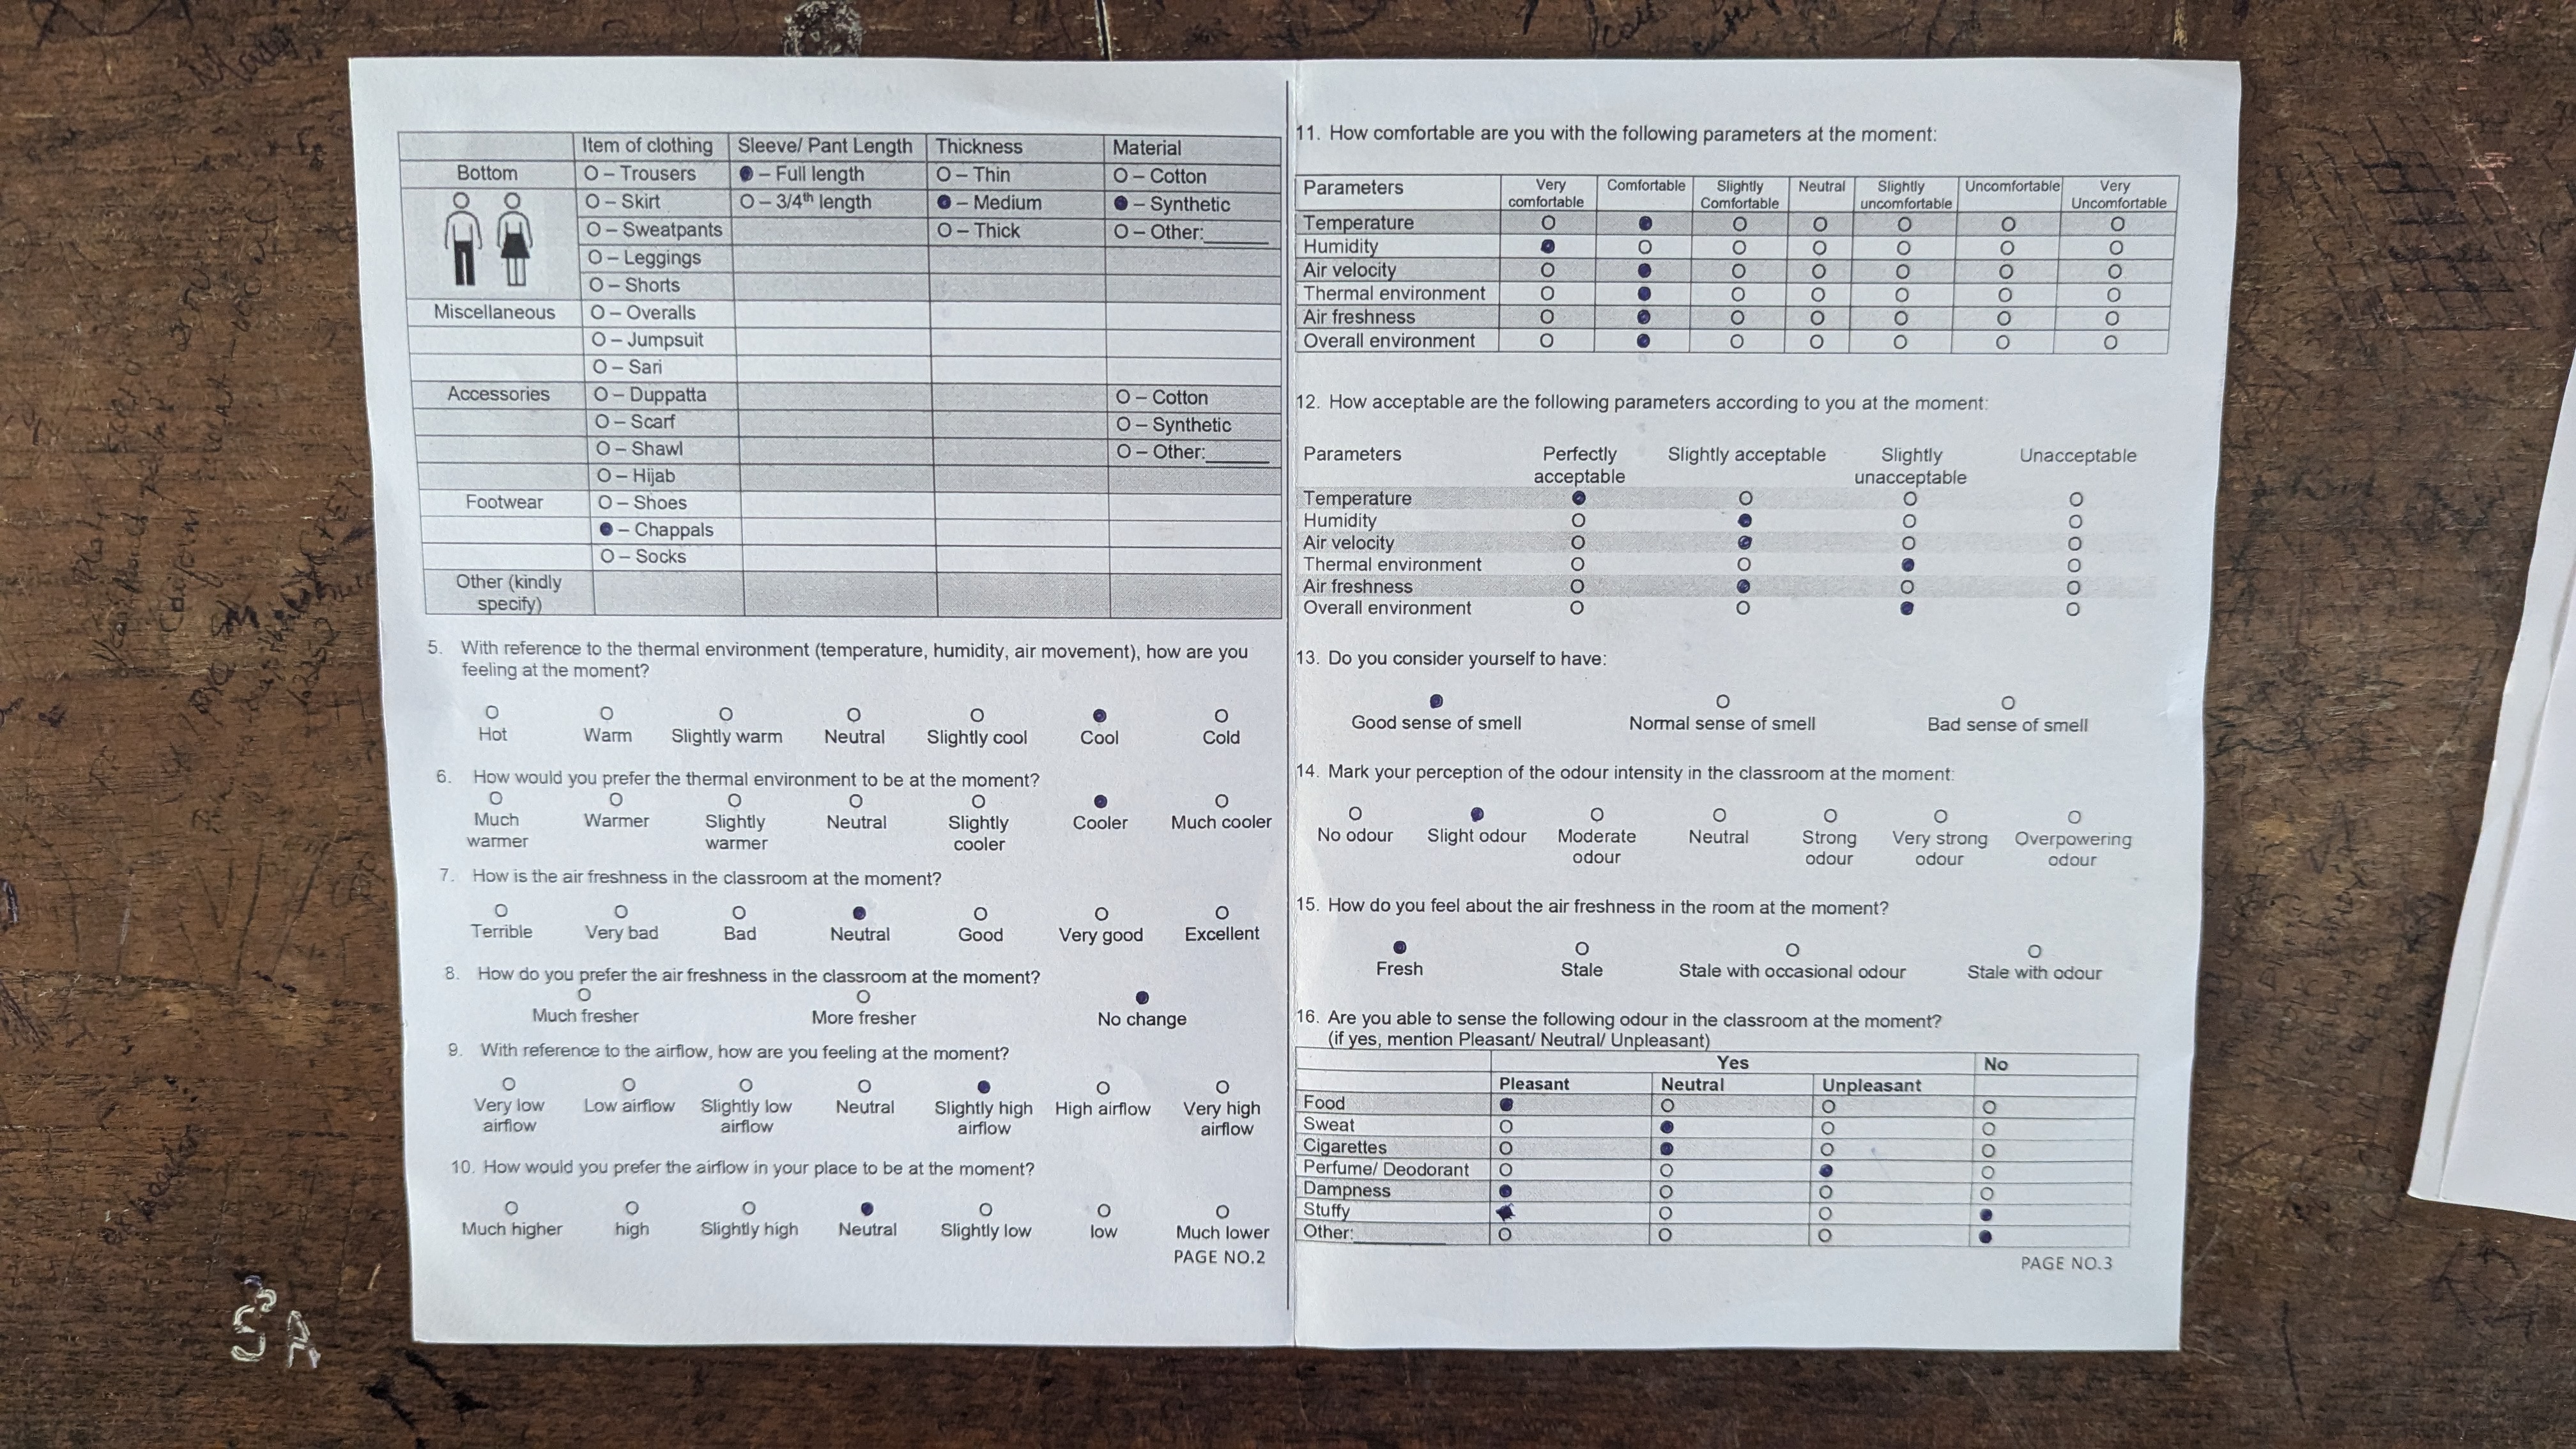 Item of clothing Sleeve/ Pant Length Thickness Material
Bottom O – Trousers ● – Full length O – Thin O – Cotton
O – Skirt O – 3/4th length ● – Medium ● – Synthetic
O – Sweatpants O – Thick O – Other:______
O – Leggings
O – Shorts
Miscellaneous O – Overalls
O – Jumpsuit
O – Sari
Accessories O – Duppatta O – Cotton
O – Scarf O – Synthetic
O – Shawl O – Other:______
O – Hijab
Footwear O – Shoes
● – Chappals
O – Socks
Other (kindly
specify)
5. With reference to the thermal environment (temperature, humidity, air movement), how are you
feeling at the moment?
O O O O O ● O
Hot Warm Slightly warm Neutral Slightly cool Cool Cold
6. How would you prefer the thermal environment to be at the moment?
O O O O O ● O
Much Warmer Slightly Neutral Slightly Cooler Much cooler
warmer warmer cooler
7. How is the air freshness in the classroom at the moment?
O O O ● O O O
Terrible Very bad Bad Neutral Good Very good Excellent
8. How do you prefer the air freshness in the classroom at the moment?
O O ●
Much fresher More fresher No change
9. With reference to the airflow, how are you feeling at the moment?
O O O O ● O O
Very low Low airflow Slightly low Neutral Slightly high High airflow Very high
airflow airflow airflow airflow
10. How would you prefer the airflow in your place to be at the moment?
O O O ● O O O
Much higher high Slightly high Neutral Slightly low low Much lower
PAGE NO.2
11. How comfortable are you with the following parameters at the moment:
Parameters Very Comfortable Slightly Neutral Slightly Uncomfortable Very
comfortable Comfortable uncomfortable Uncomfortable
Temperature O ● O O O O O
Humidity ● O O O O O O
Air velocity O ● O O O O O
Thermal environment O ● O O O O O
Air freshness O ● O O O O O
Overall environment O ● O O O O O
12. How acceptable are the following parameters according to you at the moment:
Parameters Perfectly Slightly acceptable Slightly Unacceptable
acceptable unacceptable
Temperature ● O O O
Humidity O ● O O
Air velocity O ● O O
Thermal environment O O ● O
Air freshness O ● O O
Overall environment O O ● O
13. Do you consider yourself to have:
● O O
Good sense of smell Normal sense of smell Bad sense of smell
14. Mark your perception of the odour intensity in the classroom at the moment:
O ● O O O O O
No odour Slight odour Moderate Neutral Strong Very strong Overpowering
odour odour odour odour
15. How do you feel about the air freshness in the room at the moment?
● O O O
Fresh Stale Stale with occasional odour Stale with odour
16. Are you able to sense the following odour in the classroom at the moment?
(if yes, mention Pleasant/ Neutral/ Unpleasant)
Yes No
Pleasant Neutral Unpleasant
Food ● O O O
Sweat O ● O O
Cigarettes O ● O O
Perfume/ Deodorant O O ● O
Dampness ● O O O
Stuffy ● O O ●
Other:________ O O O ●
PAGE NO.3
SA